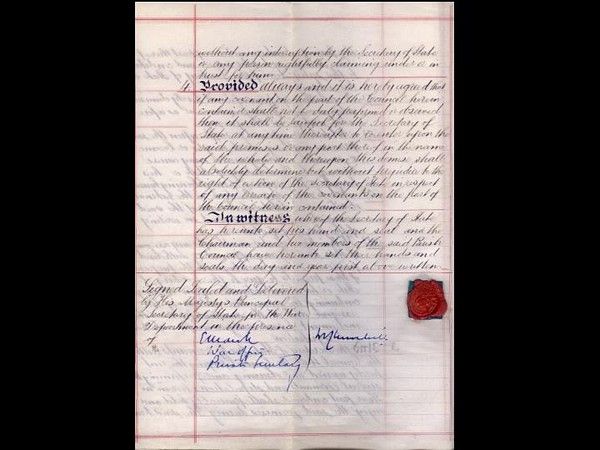 without any interruption by the Secretary of State
or any person rightfully claiming under or in
trust for him.
4. Provided always and it is hereby agreed that
if any covenant on the part of the Council herein
contained shall not be duly performed or observed
then it shall be lawful for the Secretary of
State at any time thereafter to re-enter upon the
said premises or any part thereof in the name
of the whole and thereupon this demise shall
absolutely determine but without prejudice to the
right of action of the Secretary of State in respect
of any breach of the covenants on the part of
the Council herein contained.
In witness whereof the Secretary of State
has hereunto set his hand and seal and the
Chairman and two members of the said Parish
Council have hereunto set their hands and
seals the day and year first above written
Signed Sealed and Delivered
by His Majesty's Principal
Secretary of State for the War
Department in the presence
of
War Office
Private Secretary